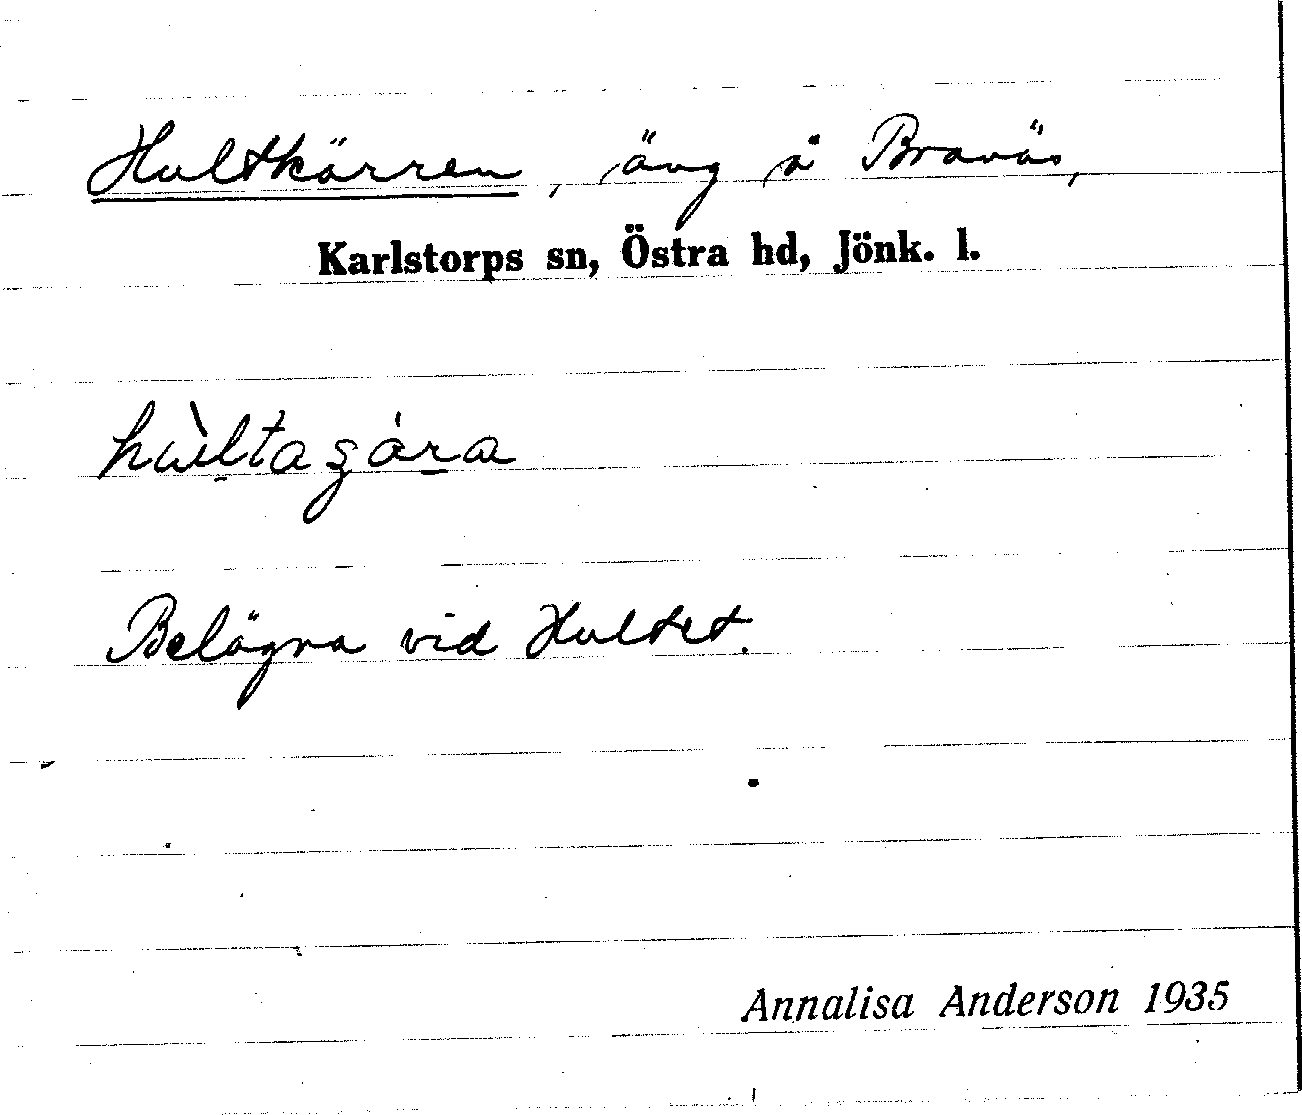 Hultkärren, äng å Bravås,
Karlstorps sn, Östra hd, Jönk. l.
Belägna vid Hultet.
Annalisa Anderson 1935